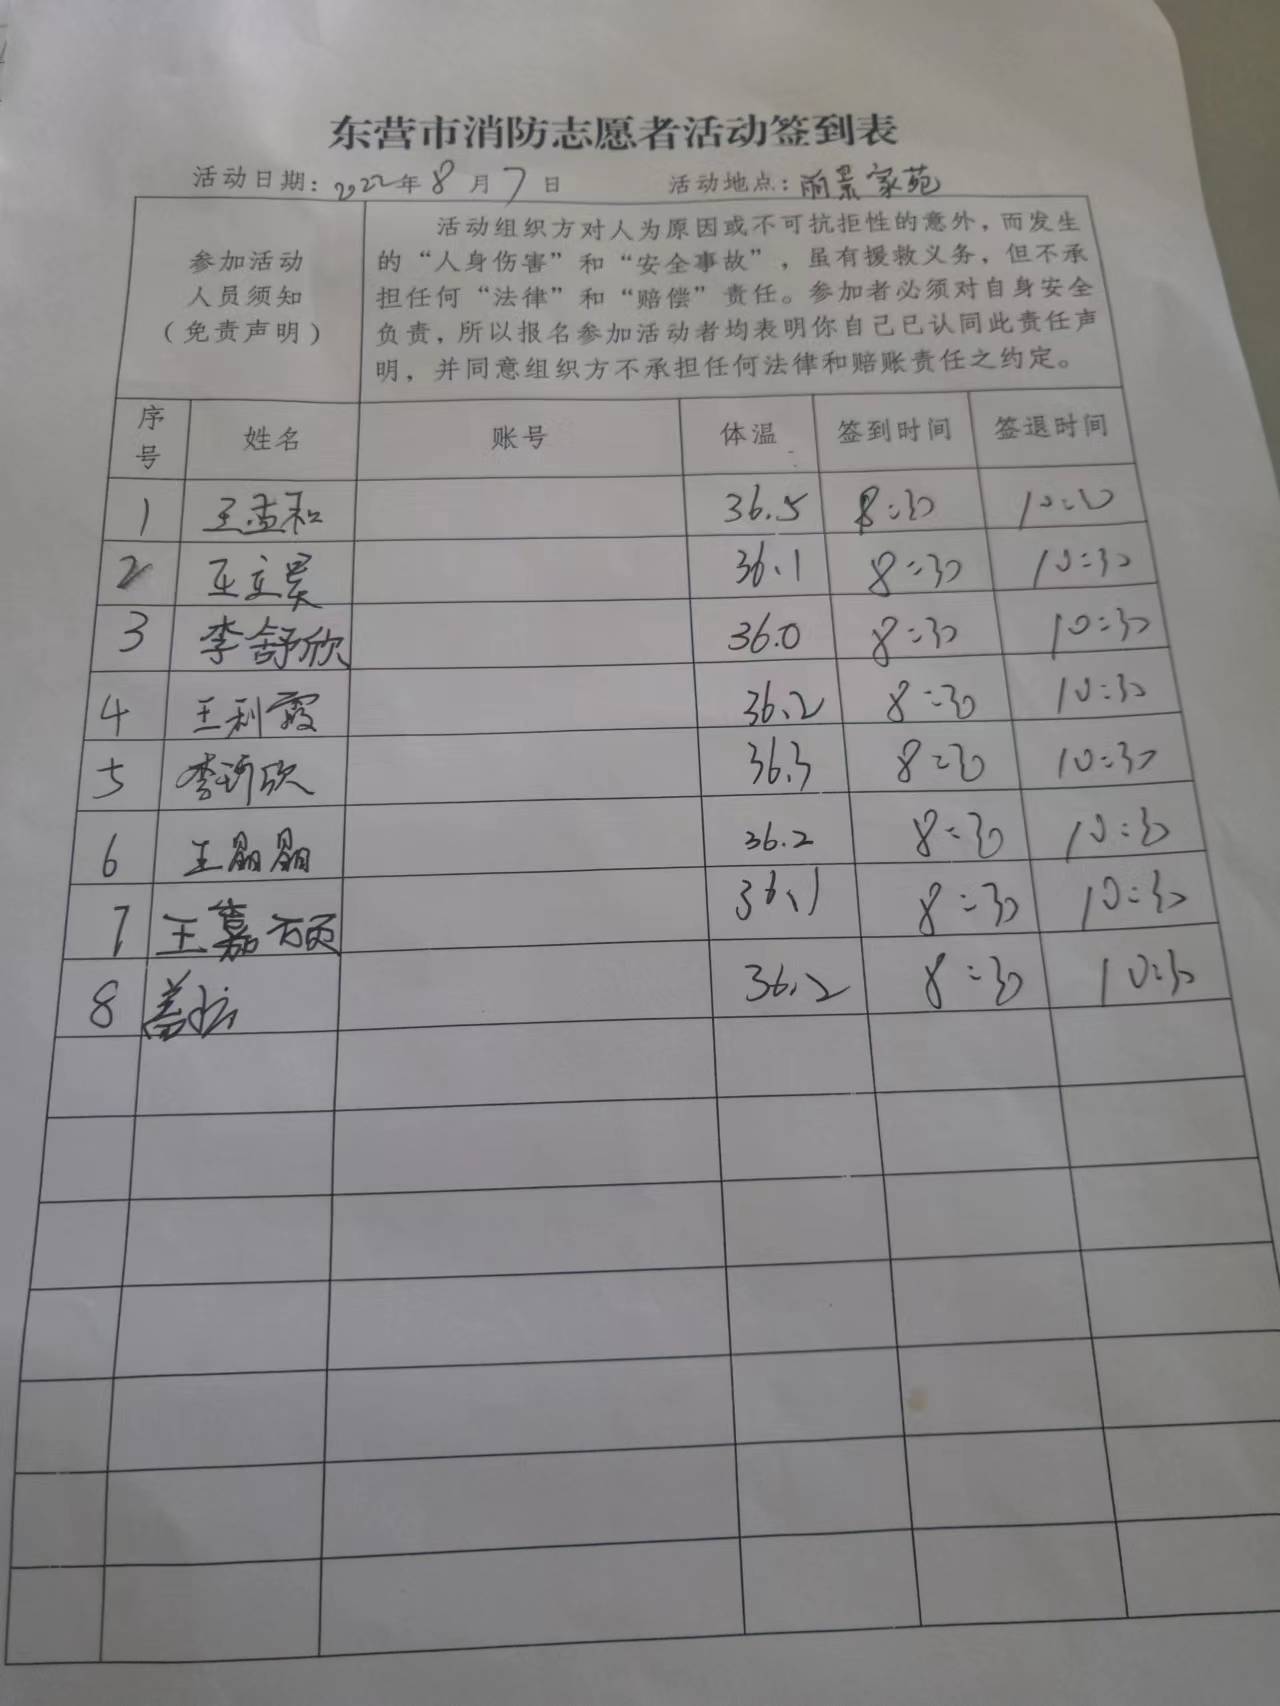 东营市消防志愿者活动签到表
活动日期：2022年8月7日 活动地点：丽景家苑
参加活动
人员须知
（免责声明）
活动组织方对人为原因或不可抗拒性的意外，而发生
的“人身伤害”和“安全事故”，虽有援救义务，但不承
担任何“法律”和“赔偿”责任。参加者必须对自身安全
负责，所以报名参加活动者均表明你自己已认同此责任声
明，并同意组织方不承担任何法律和赔账责任之约定。
序号 姓名 账号 体温 签到时间 签退时间
1 王孟和 36.5 8:30 10:30
2 王立昊 36.1 8:30 10:30
3 李舒欣 36.0 8:30 10:30
4 王利霞 36.2 8:30 10:30
5 李沂欣 36.3 8:30 10:30
6 王晶晶 36.2 8:30 10:30
7 王嘉硕 36.1 8:30 10:30
8 36.2 8:30 10:30